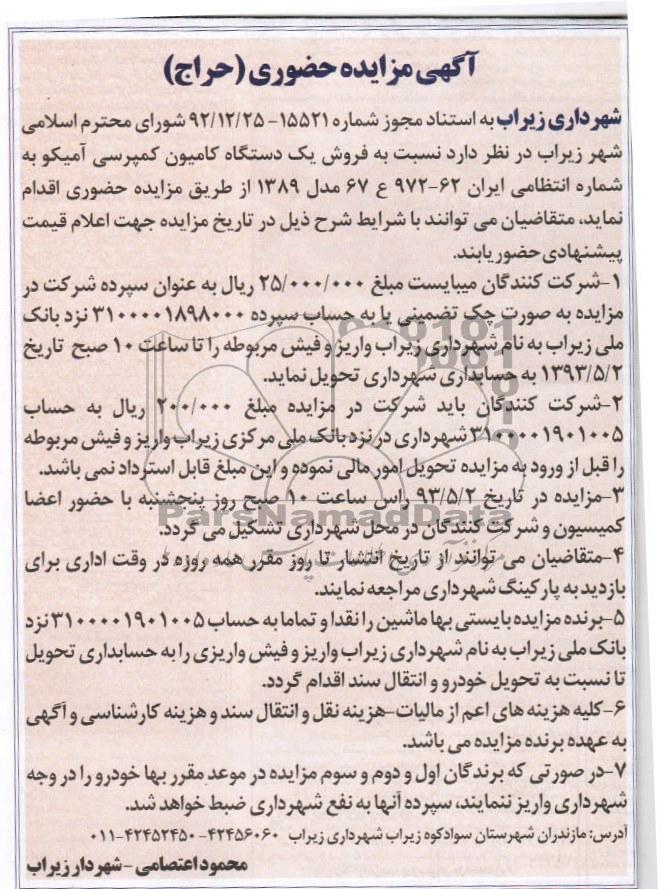 آگهی مزایده حضوری (حراج)
شهرداری زیراب به استناد مجوز شماره ۱۵۵۲۱- ۹۲/۱۲/۲۵ شورای محترم اسلامی
شهر زیراب در نظر دارد نسبت به فروش یک دستگاه کامیون کمپرسی آمیکو به
شماره انتظامی ایران ۶۲-۹۷۲ ع ۶۷ مدل ۱۳۸۹ از طریق مزایده حضوری اقدام
نماید، متقاضیان می توانند با شرایط شرح ذیل در تاریخ مزایده جهت اعلام قیمت
پیشنهادی حضور یابند.
۱-شرکت کنندگان میبایست مبلغ ۲۵/۰۰۰/۰۰۰ ریال به عنوان سپرده شرکت در
مزایده به صورت چک تضمینی یا به حساب سپرده ۳۱۰۰۰۰۱۸۹۸۰۰۰ نزد بانک
ملی زیراب به نام شهرداری زیراب واریز و فیش مربوطه را تا ساعت ۱۰ صبح تاریخ
۱۳۹۳/۵/۲ به حسابداری شهرداری تحویل نماید.
۲-شرکت کنندگان باید شرکت در مزایده مبلغ ۲۰۰/۰۰۰ ریال به حساب
۳۱۰۰۰۰۱۹۰۱۰۰۵ شهرداری در نزد بانک ملی مرکزی زیراب واریز و فیش مربوطه
را قبل از ورود به مزایده تحویل امور مالی نموده و این مبلغ قابل استرداد نمی باشد.
۳-مزایده در تاریخ ۹۳/۵/۲ راس ساعت ۱۰ صبح روز پنجشنبه با حضور اعضا
کمیسیون و شرکت کنندگان در محل شهرداری تشکیل می گردد.
ParsNamadData
۴-متقاضیان می توانند از تاریخ انتشار تا روز مقرر همه روزه در وقت اداری برای
بازدید به پارکینگ شهرداری مراجعه نمایند.
۵-برنده مزایده بایستی بها ماشین را نقدا و تماما به حساب ۳۱۰۰۰۰۱۹۰۱۰۰۵ نزد
بانک ملی زیراب به نام شهرداری زیراب واریز و فیش واریزی را به حسابداری تحویل
تا نسبت به تحویل خودرو و انتقال سند اقدام گردد.
۶-کلیه هزینه های اعم از مالیات-هزینه نقل و انتقال سند و هزینه کارشناسی و آگهی
به عهده برنده مزایده می باشد.
۷-در صورتی که برندگان اول و دوم و سوم مزایده در موعد مقرر بها خودرو را در وجه
شهرداری واریز ننمایند، سپرده آنها به نفع شهرداری ضبط خواهد شد.
آدرس: مازندران شهرستان سوادکوه زیراب شهرداری زیراب ۴۲۴۵۶۰۶۰- ۴۲۴۵۲۴۵۰-۰۱۱
محمود اعتصامی -شهردار زیراب